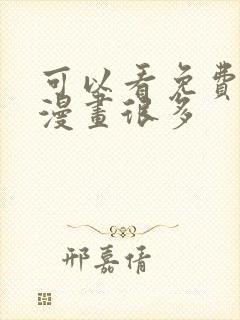 可以看免費
漫畫很多
邢嘉倩